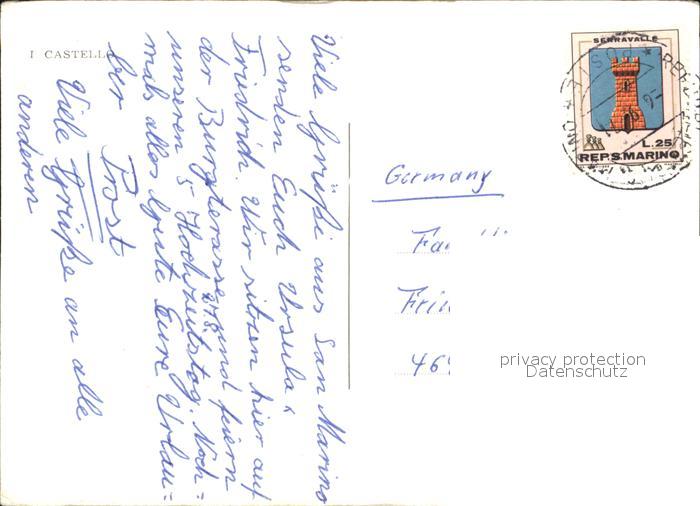 I CASTELL
Viele Grüße aus San Marino
senden Euch Ursula &
Friedrich. Wir sitzen hier auf
der Burgterasse und feiern
27.8.
unseren 5 Hochzeitstag. Noch=
mals alles Gute Eure Urlau=
ber Prost
Viele Grüße an alle
anderen
SERRAVALLE
L.25
REP.S.MARINO
POSTE
Germany
Fa
Fri
469
privacy protection
Datenschutz